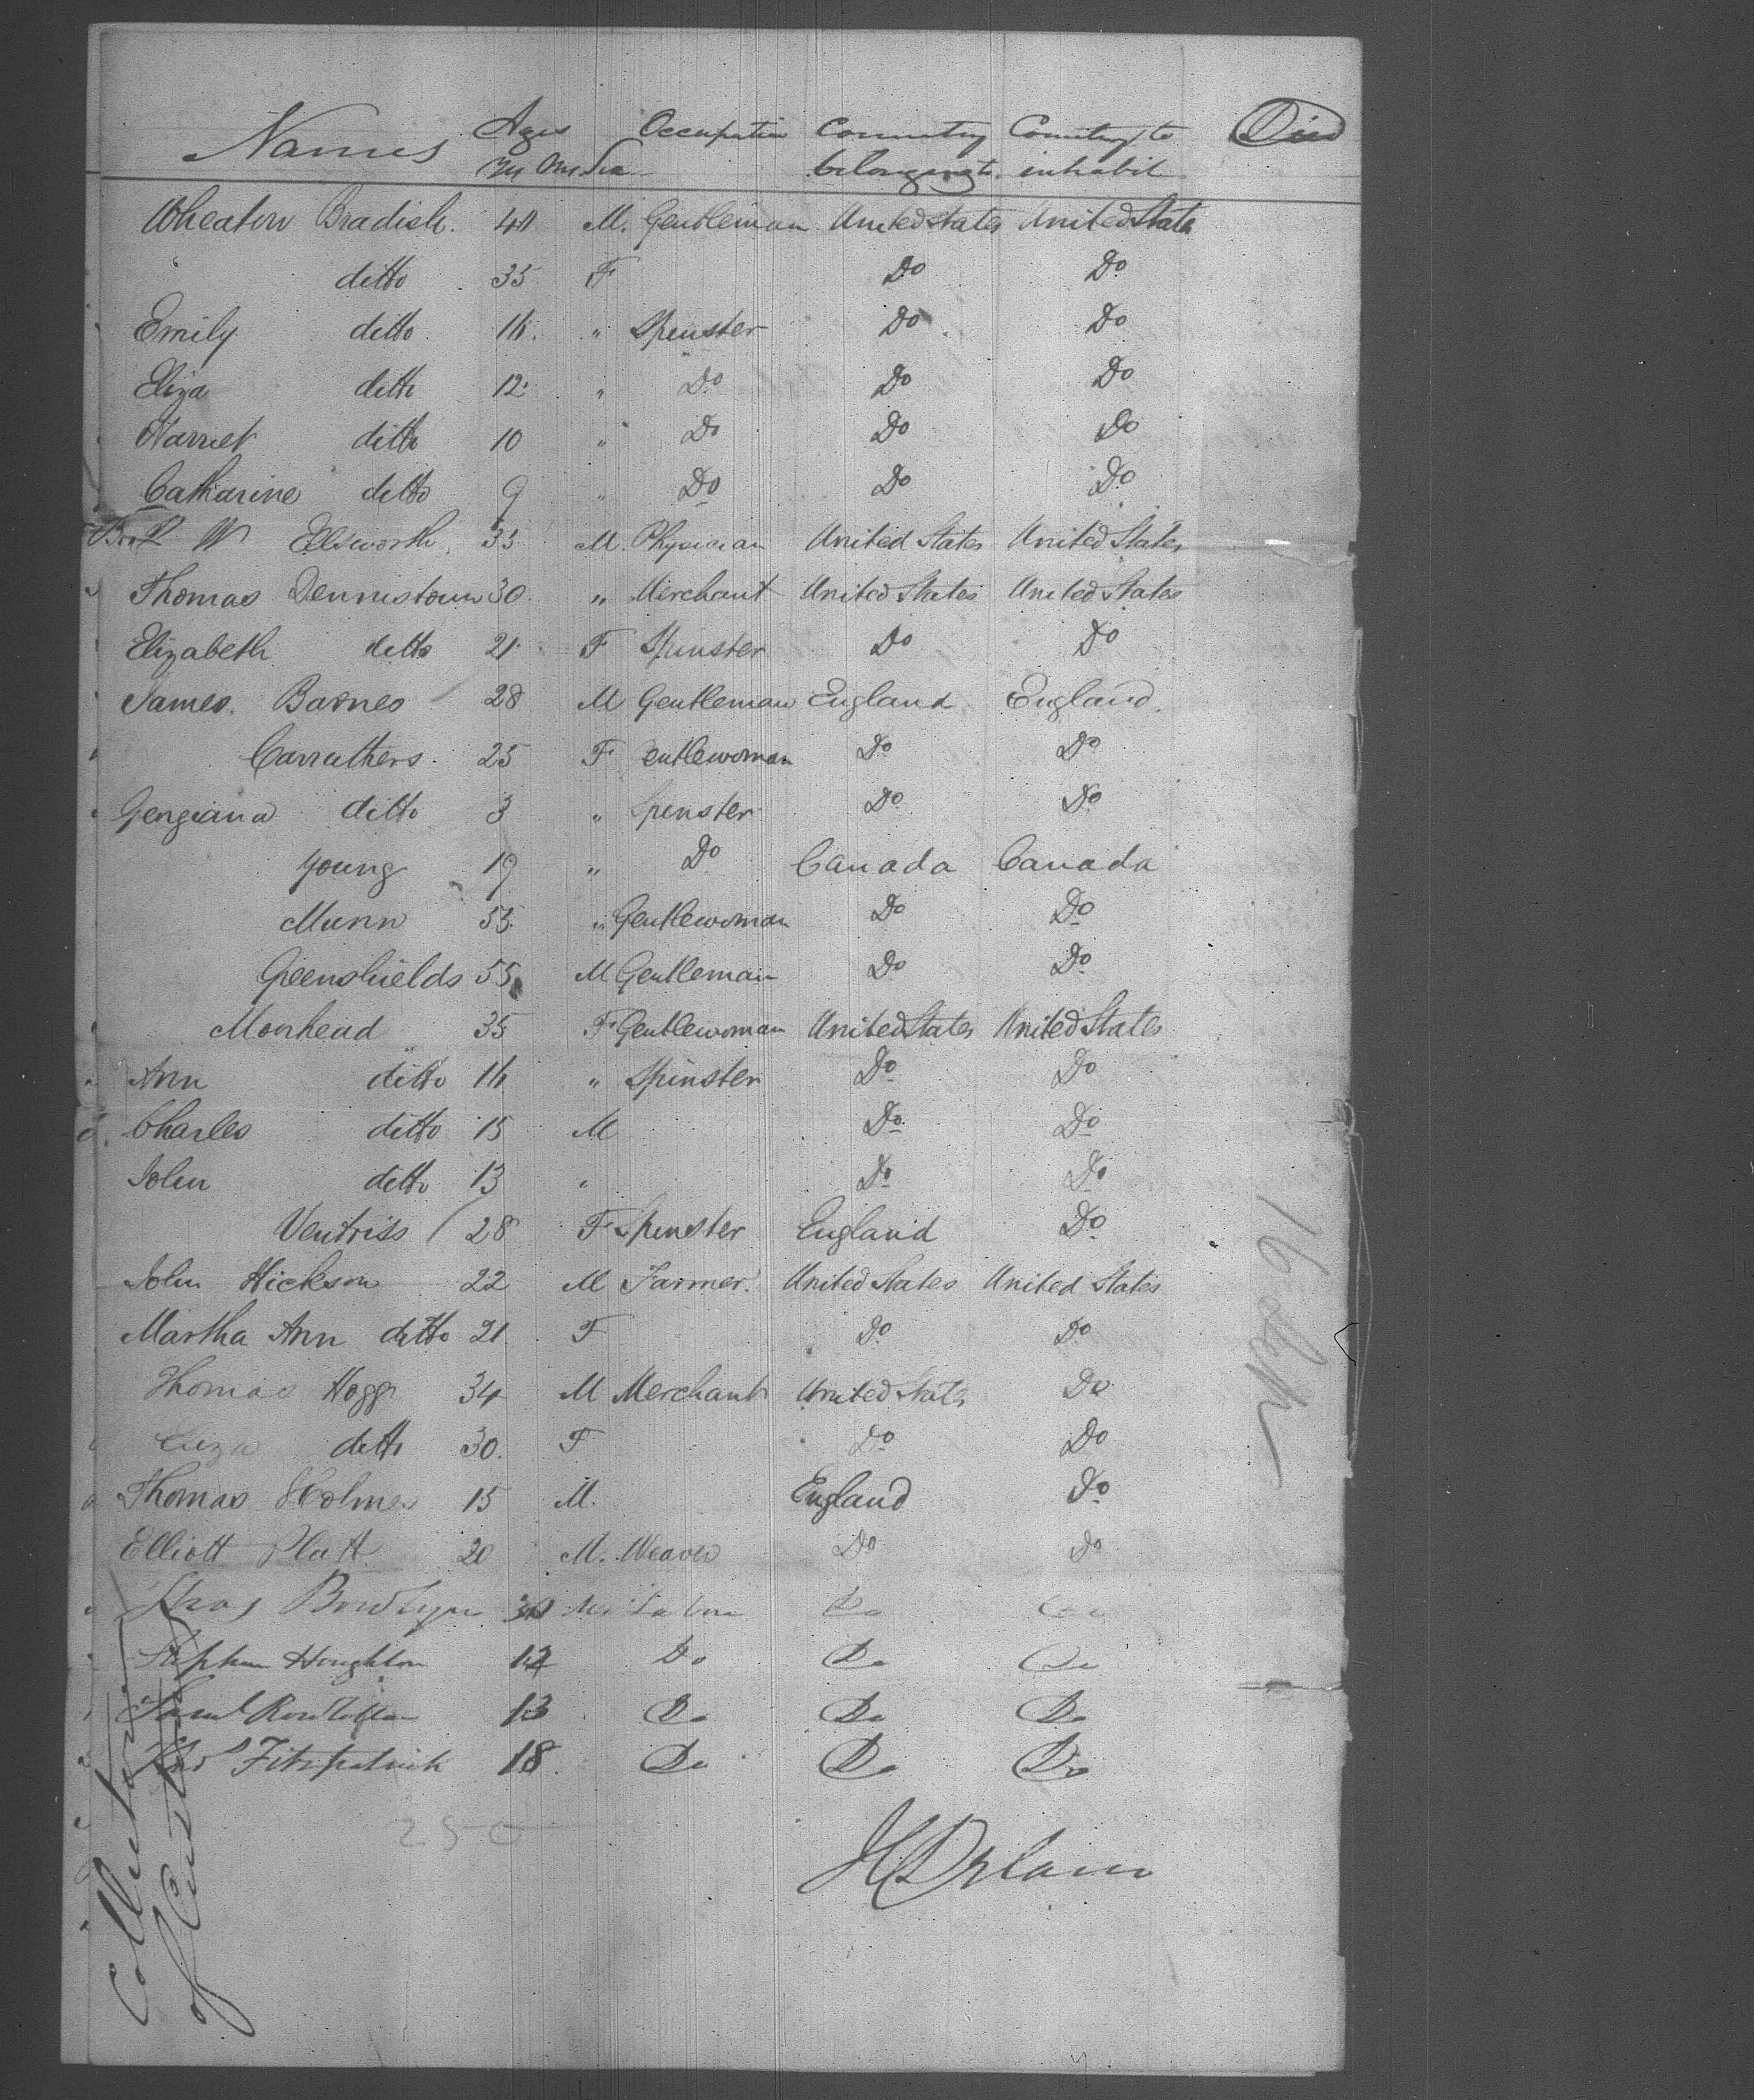 Names Ages Occupation Country Country to Died
Yrs Ms Sex belonging to inhabit
Wheaton Bradish. 40 M. Gentleman United States United States
ditto 35 F Do Do
Emily ditto 16. " Spinster Do Do
Eliza ditto 12 " Do Do Do
Harriet ditto 10 " Do Do Do
Catharine ditto 9 " Do Do Do
W Ellsworth 35 M. Physician United States United States
Thomas Dennistoun 30 " Merchant United States United States
Elizabeth ditto 21 F Spinster Do Do
James Barnes 28 M Gentleman England England.
Carruthers. 25 F entlewoman Do Do
Gengiana ditto 3 " Spinster Do Do
Young 19 " Do Canada Canada
Munn 55 " Gentlewoman Do Do
Greenshields 55 M Gentleman Do Do
Monhead 35 F Gentlewoman United States United States
Ann ditto 16 " Spinster Do Do
Charles ditto 15 M Do Do
John ditto 13 " Do Do
Ventriss 28 F Spinster England Do
John Hickson 22 M Farmer. United States United States
Martha Ann ditto 21 F Do Do
Thomas Hogg 34 M Merchant United States Do
Eliza ditto 30. F Do Do
Thomas Holmes 15 M. England Do
Elliott Platt 20 M. Weaver Do Do
30 Do Do
Stephen Houghton 12 Do Do Do
Saml 13 Do Do Do
Fitzpatrick 18. Do Do Do
250
Collector
of Customs